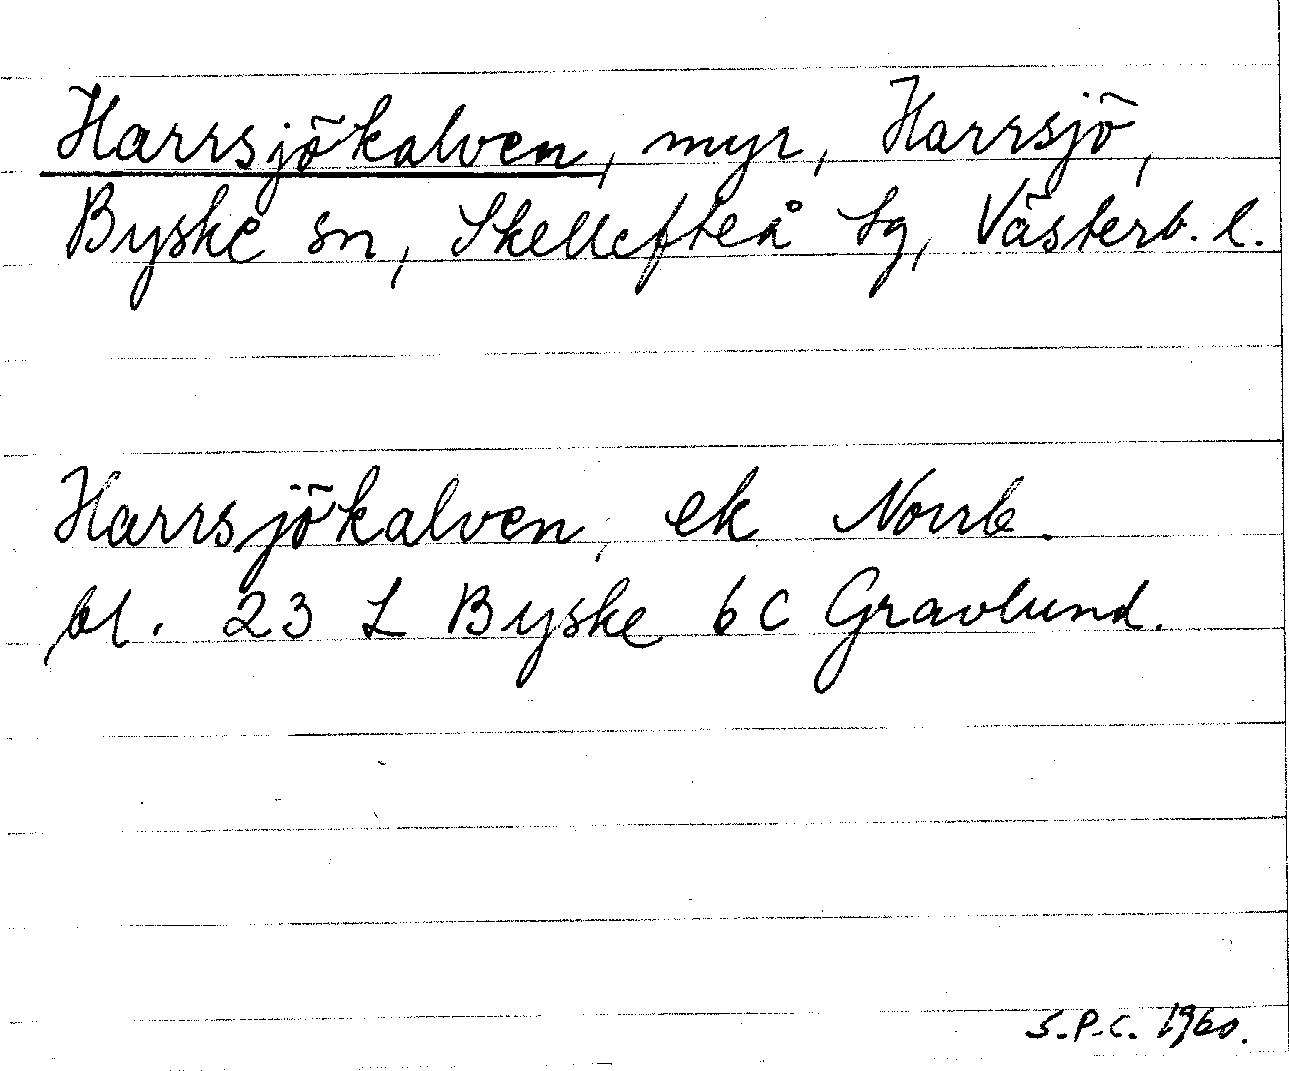 Harrsjökalven, myr, Harrsjö,
Byske sn, Skellefteå tg, Västerb. l.
Harrsjökalven, ek Norrb.
bl. 23 L Byske 6 C Gravlund.
S.P.C. 1960.